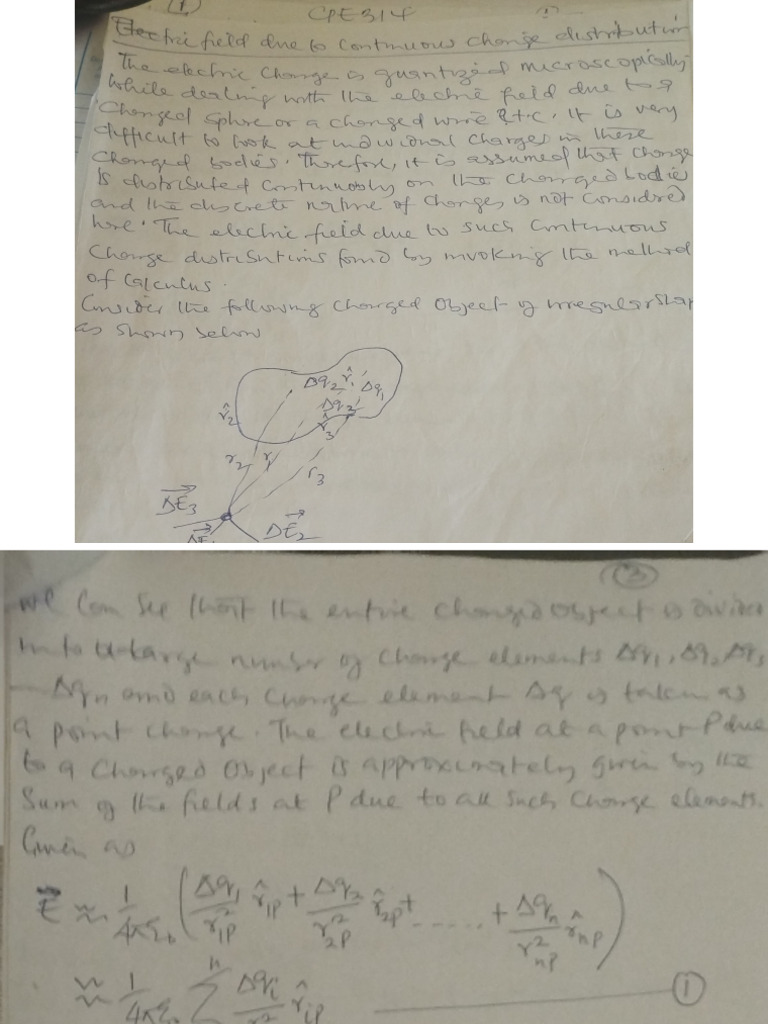 (1)
CPE314
Electric field due to continuous charge distribution
The electric charge is quantized microscopically
while dealing with the electric field due to a
charged sphere or a charged wire etc. It is very
difficult to look at individual charges in these
charged bodies. Therefore, it is assumed that charge
is distributed continuously on the charged bodies
and the discrete nature of charges is not considred
here. The electric field due to such continuous
charge distributions found by invoking the method
of calculus.
Consider the following charged object of irregular shap
as shown below
Δq₂ r̂₁ Δq₁
Δq₃
r̂₂
r̂₃
r₂ r₁
r₃
ΔE₃
ΔE₂
(3)
We can see that the entire charged object is divided
into a large number of charge elements Δq₁, Δq₂, Δq₃
— Δqₙ and each charge element Δq is taken as
a point charge. The electric field at a point P due
to a charged object is approximately given by the
sum of the fields at P due to all such charge elements.
Given as
E ≈ 1/4πε₀ (Δq₁/r²₁ₚ r̂₁ₚ + Δq₂/r²₂ₚ r̂₂ₚ + ...... + Δqₙ/r²ₙₚ r̂ₙₚ)
≈ 1/4πε₀ Σⁿ Δqᵢ/r² r̂ᵢₚ — (1)